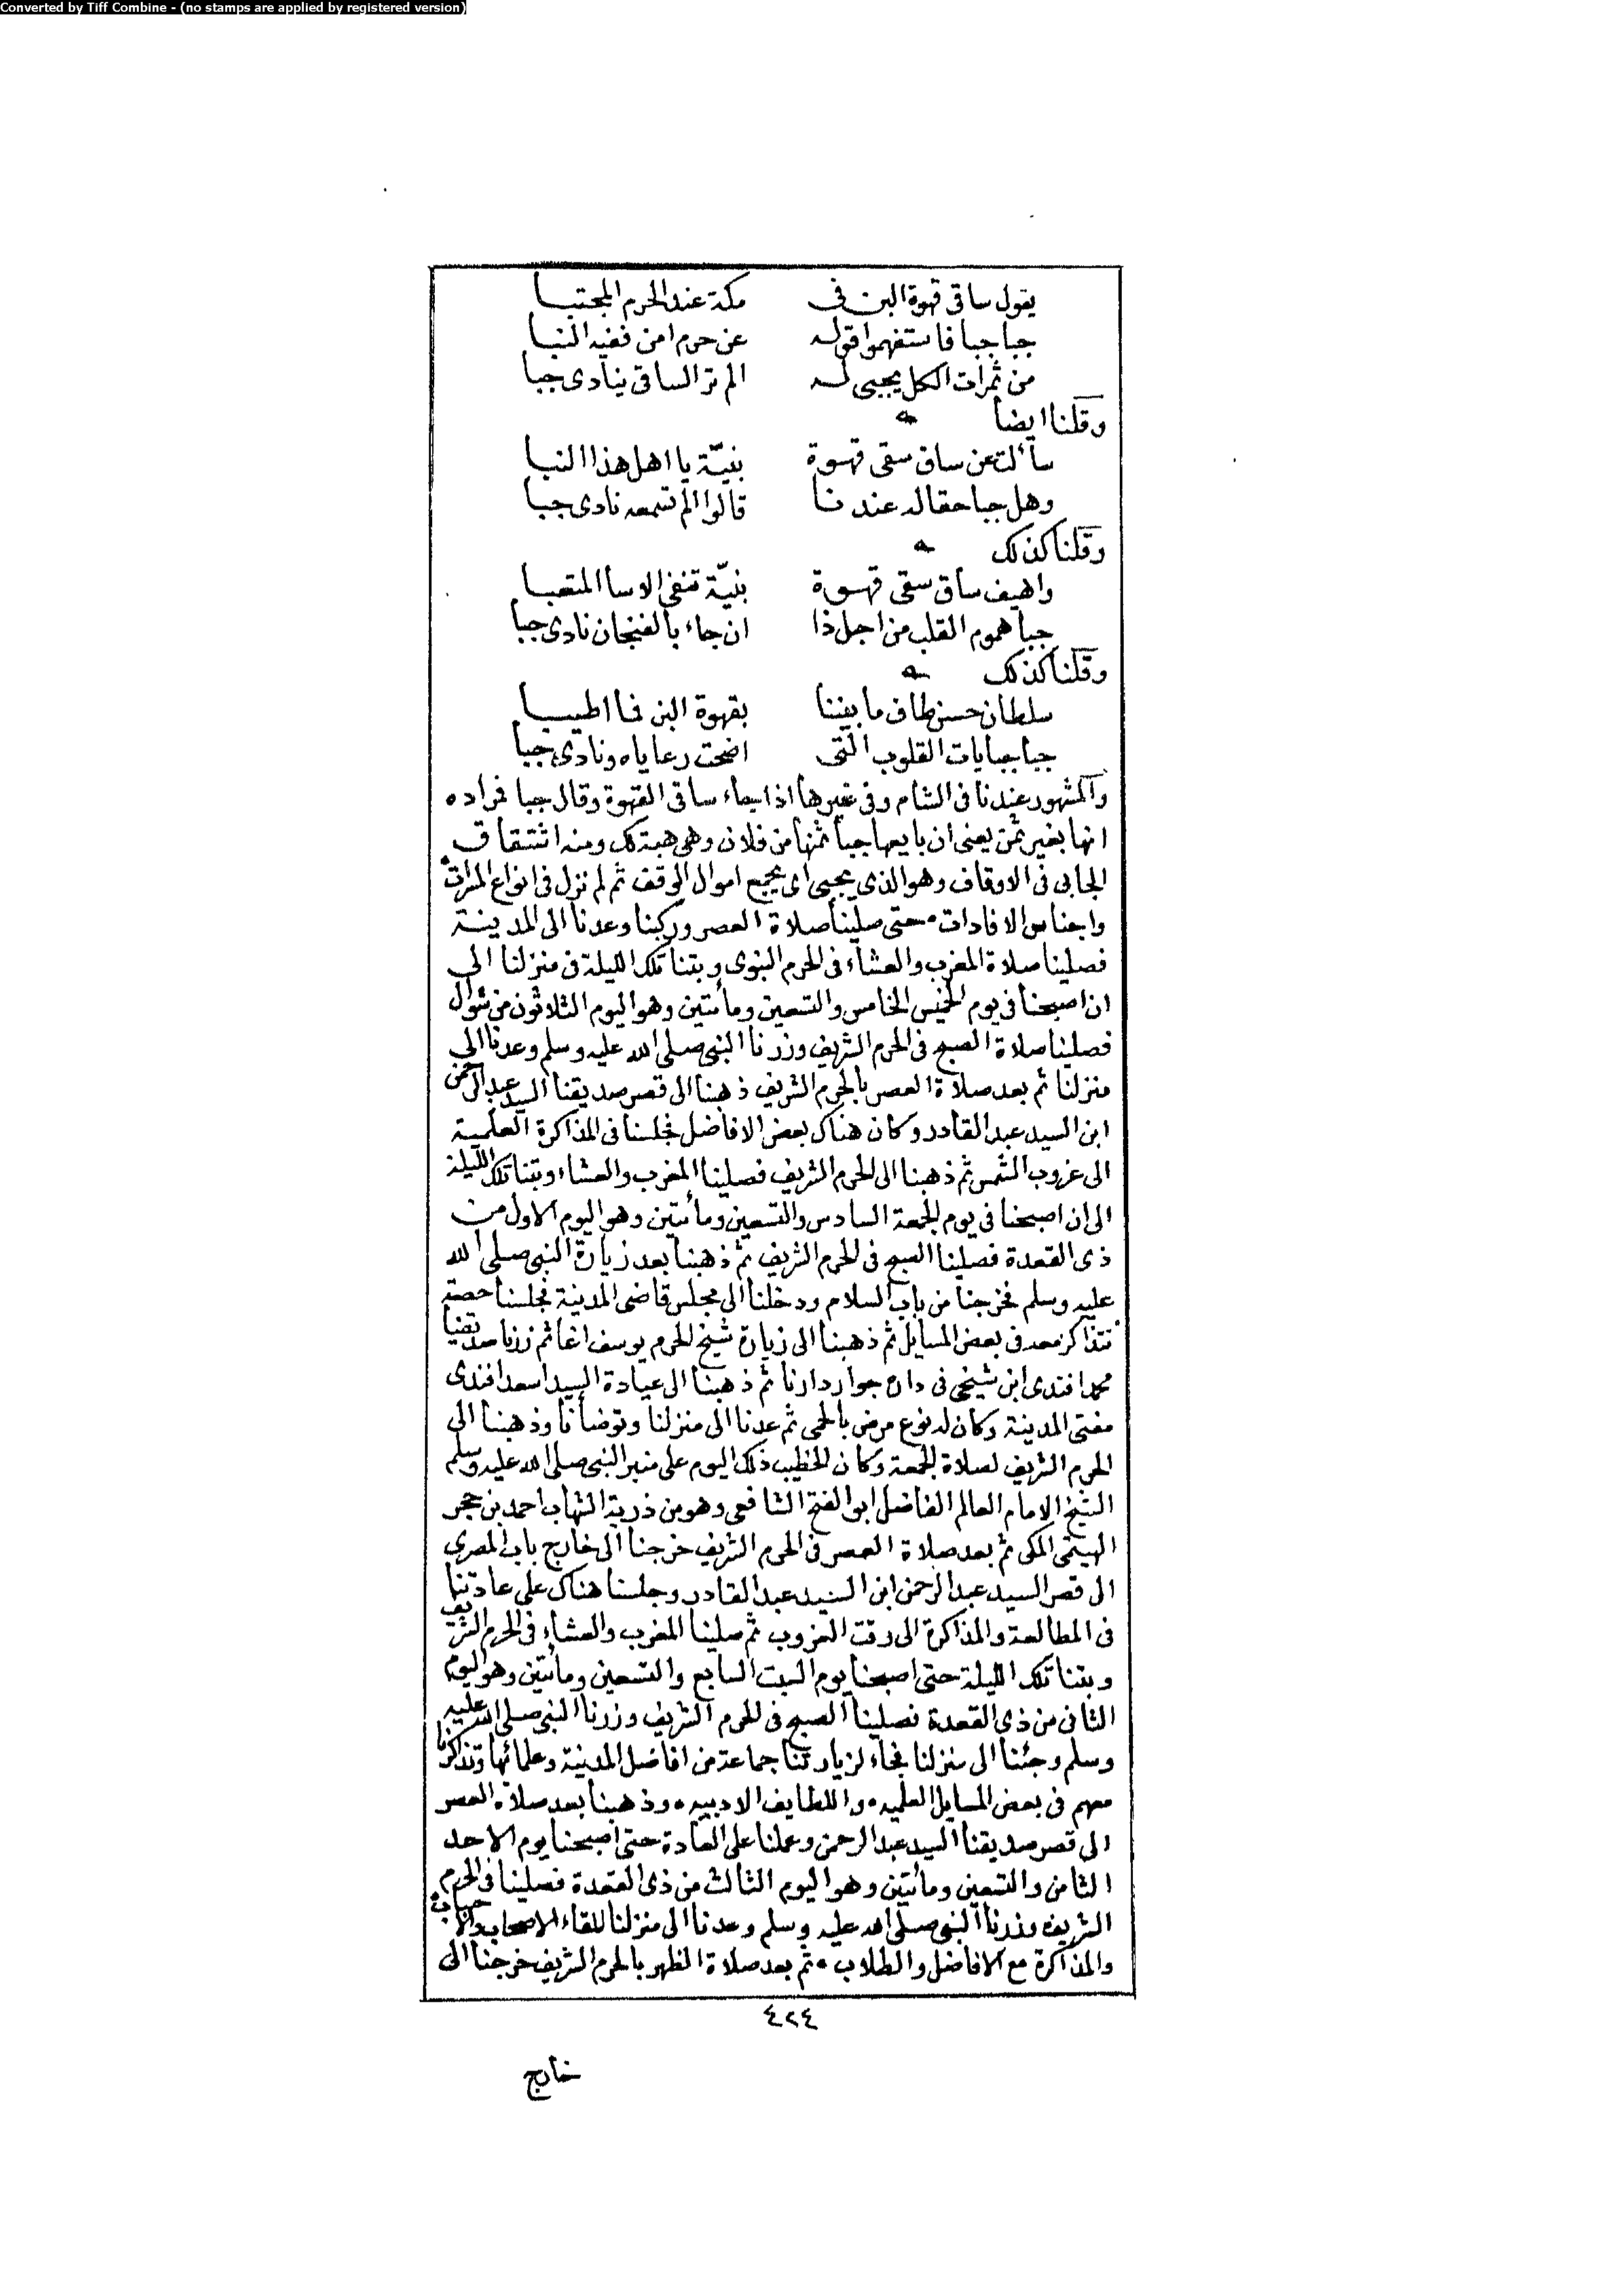 Converted by Tiff Combine - (no stamps are applied by registered version)
يقول ساقى قهوة البن فى مكة عند الحرم المجتبا
جبا جبا فاستفهموا قوله عن حرم امن ففيه النبا
من ثمرات الكل يجبى له الم تر الساقى ينادى جبا
وقلنا ايضا
سألت عن ساق سقى قهوة بنيّة يا اهل هذا النبا
وهل جبا حقا له عندنا قالوا الم تسمعه نادى جبا
وقلنا كذلك
واهيف ساق سقى قهوة بنيّة تنفى الاسا المتعبا
جبا هموم القلب من اجل ذا ان جاء بالفنجان نادى جبا
وقلنا كذلك
سلطان حسن طاف ما بيننا بقهوة البن فما اطيبا
جبا جبايات القلوب التى اضحت رعاياه ونادى جبا
والمشهور عندنا فى الشام وفى غيرها اذا جاء ساقى القهوة وقال جبا فمراده
انها بغير ثمن يعنى ان بايعها جبا ثمنها من فلان وهى هبة لك ومنه اشتقاق
الجابى فى الاوقاف وهو الذى يجبى اى يجمع اموال الوقف ثم لم نزل فى انواع المسرات
واجناس الافادات حتى صلينا صلاة العصر وركبنا وعدنا الى المدينة
فصلينا صلاة المغرب والعشاء فى الحرم النبوى وبتنا تلك الليلة فى منزلنا الى
ان اصبحنا فى يوم الخميس الخامس والتسعين ومأتين وهو اليوم الثلاثون من شوال
فصلينا صلاة الصبح فى الحرم الشريف وزرنا النبى صلى الله عليه وسلم وعدنا الى
منزلنا ثم بعد صلاة العصر بالحرم الشريف ذهبنا الى قصر صديقنا السيد عبد الرحمن
ابن السيد عبد القادر وكان هناك بعض الافاضل فجلسنا فى المذاكرة العلمية
الى غروب الشمس ثم ذهبنا الى الحرم الشريف فصلينا المغرب والعشاء وبتنا تلك الليلة
الى ان اصبحنا فى يوم الجمعة السادس والتسعين ومأتين وهو اليوم الاول من
ذى القعدة فصلينا الصبح فى الحرم الشريف ثم ذهبنا بعد زيارة النبى صلى الله
عليه وسلم فخرجنا من باب السلام ودخلنا الى مجلس قاضى المدينة فجلسنا حصة
نتذاكر معه فى بعض المسايل ثم ذهبنا الى زيارة شيخ الحرم يوسف اغا ثم زرنا صديقنا
محمد افندى ابن شيخى فى داره جوار دارنا ثم ذهبنا الى عيادة السيد اسعد افندى
مفتى المدينة وكان له نوع مرض بالحمى ثم عدنا الى منزلنا وتوضأنا وذهبنا الى
الحرم الشريف لصلاة الجمعة وكان الخطيب ذلك اليوم على منبر النبى صلى الله عليه وسلم
الشيخ الامام العالم الفاضل ابو الفتح الشافعى وهو من ذرية الشهاب احمد بن حجر
الهيتمى المكى ثم بعد صلاة العصر فى الحرم الشريف خرجنا الى خارج باب المصرى
الى قصر السيد عبد الرحمن ابن السيد عبد القادر وجلسنا هناك على عادتنا
فى المطالعة والمذاكرة الى وقت الغروب ثم صلينا المغرب والعشاء فى الحرم الشريف
وبتنا تلك الليلة حتى اصبحنا يوم السبت السابع والتسعين ومأتين وهو اليوم
الثانى من ذى القعدة فصلينا الصبح فى الحرم الشريف وزرنا النبى صلى الله عليه
وسلم وجئنا الى منزلنا فجاء لزيارتنا جماعة من افاضل المدينة وعلمائها وتذاكرنا
معهم فى بعض المسايل العلميه واللطايف الادبيه وذهبنا بعد صلاة العصر
الى قصر صديقنا السيد عبد الرحمن وعملنا على العادة حتى اصبحنا يوم الاحد
الثامن والتسعين ومأتين وهو اليوم الثالث من ذى القعدة فصلينا فى الحرم
الشريف وزرنا النبى صلى الله عليه وسلم وعدنا الى منزلنا للقاء الاصحاب والاحباب
والمذاكرة مع الافاضل والطلاب ثم بعد صلاة الظهر بالحرم الشريف خرجنا الى
٤٢٤
خارج